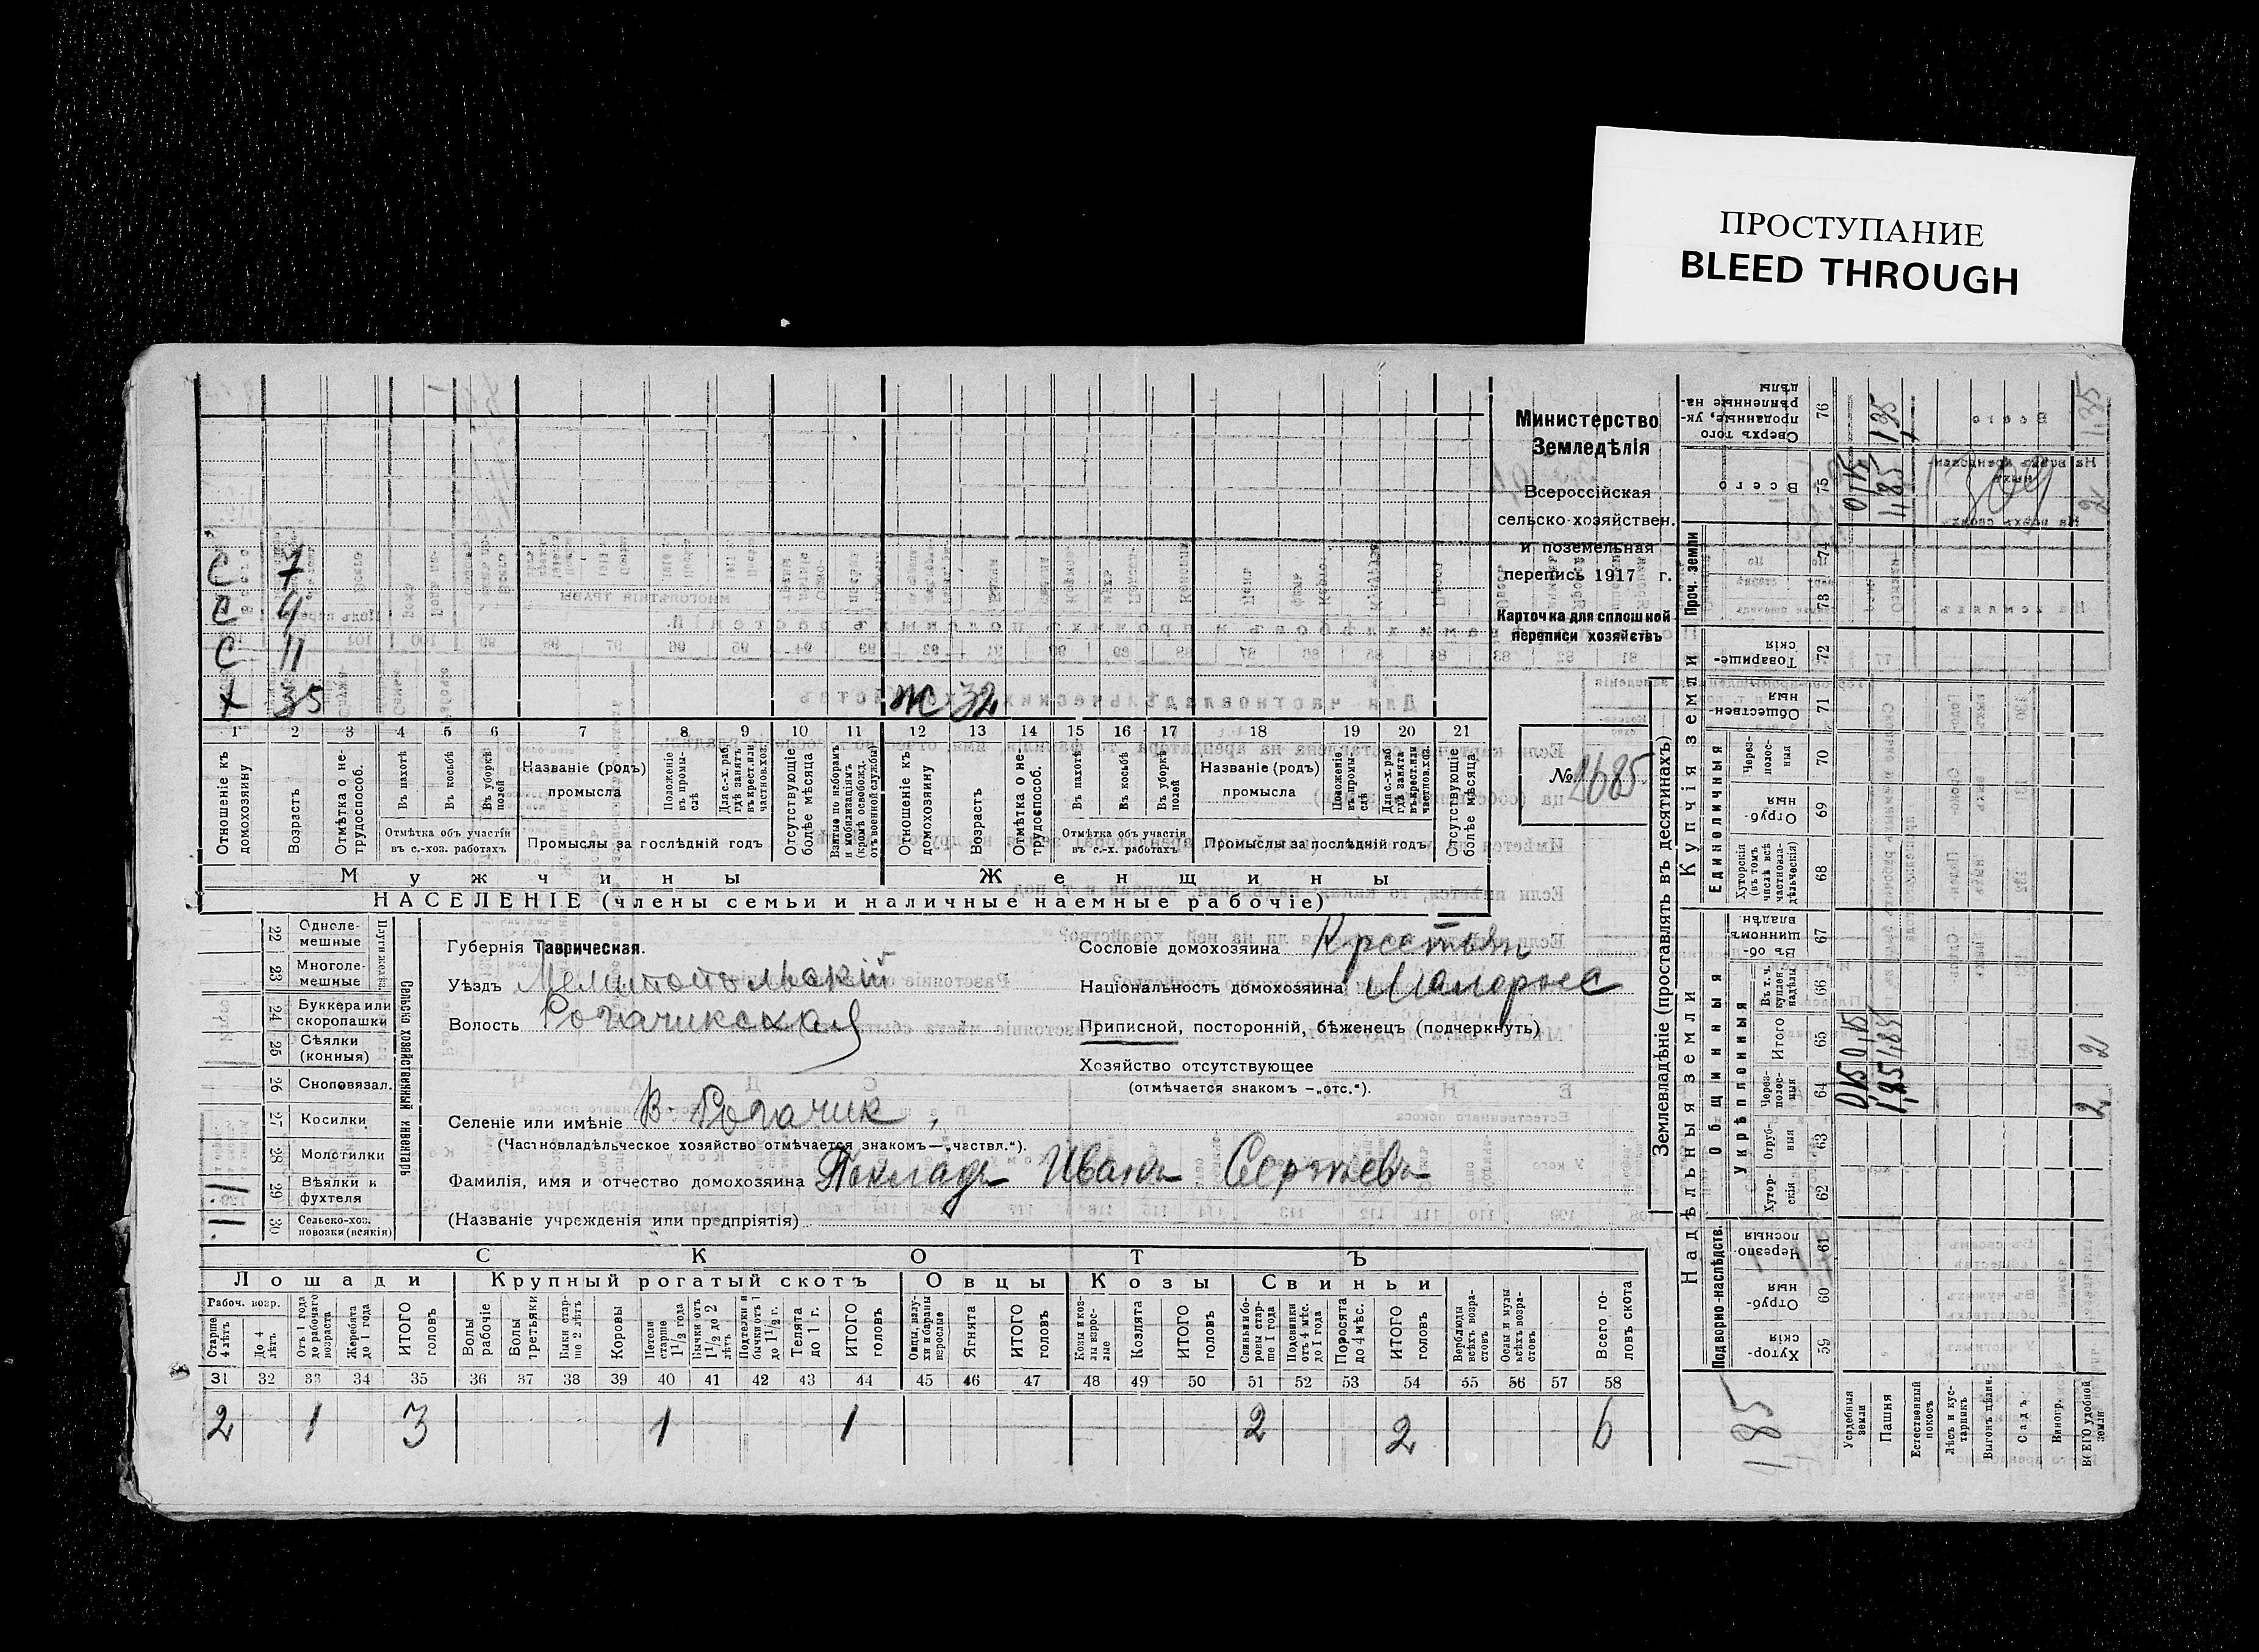 ПРОСТУПАНИЕ
BLEED THROUGH
Министерство
Земледѣлія
Всероссійская
сельско-хозяйствен.
и поземельная
перепись 1917 г.
Карточка для сплошной
переписи хозяйствъ
№ 1685
С 7
С 9
С 11
х 35 Ж 32
1 2 3 4 5 6 7 8 9 10 11 12 13 14 15 16 17 18 19 20 21
Отношеніе къ домохозяину
Возрастъ
Отмѣтка о не-трудоспособ.
Въ пахотѣ
Въ косьбѣ
Въ уборкѣ полей
Отмѣтка объ участіи въ с.-хоз. работахъ
Названіе (родъ) промысла
Положеніе въ промы-слѣ
Для с.-х. раб. гдѣ занятъ въ крест. или частнов. хоз.
Промыслы за послѣдній годъ
Отсутствующіе болѣе мѣсяца
Взятые по наборамъ и мобилизаціямъ (кромѣ освобожд. отъ военной службы)
Отношеніе къ домохозяину
Возрастъ
Отмѣтка о не-трудоспособ.
Въ пахотѣ
Въ косьбѣ
Въ уборкѣ полей
Отмѣтка объ участіи въ с.-х. работахъ
Названіе (родъ) промысла
Положеніе въ промы-слѣ
Для с.-х. раб. гдѣ занята въ крест. или частнов. хоз.
Промыслы за послѣдній годъ
Отсутствующіе болѣе мѣсяца
Мужчины Женщины
НАСЕЛЕНІЕ (члены семьи и наличные наемные рабочіе)
Сельско хозяйственный инвентарь
22 Одноле-мешные
23 Многоле-мешные
24 Буккера или скоропашки
25 Сѣялки (конныя)
26 Сноповязал.
27 Косилки
28 Молотилки
29 Вѣялки и фухтеля 1
30 Сельско-хоз. повозки (всякія) 1
Губернія Таврическая.
Уѣздъ Мелитопольскій
Волость Рогачикская
Селеніе или имѣніе В. Рогачик
(Частновладѣльческое хозяйство отмѣчается знакомъ—„частвл.“).
Фамилія, имя и отчество домохозяина Покладъ Иванъ Сергѣевъ
(Названіе учрежденія или предпріятія)
Сословіе домохозяина Крестьян
Національность домохозяина Малоросс
Приписной, посторонній, бѣженецъ (подчеркнуть)
Хозяйство отсутствующее
(отмѣчается знакомъ —„отс.“).
СКОТЪ
Лошади Крупный рогатый скотъ Овцы Козы Свиньи
Рабоч. возр.
Старше 4 лѣтъ
До 4 лѣтъ
Отъ 1 года до рабочаго возраста
Жеребята до 1 года
ИТОГО головъ
Волы рабочіе
Волы третьяки
Быки стар-ше 2 лѣтъ
Коровы
Нетели старше 1½ года
Бычки отъ 1½ до 2 лѣтъ
Подтелки и бычки отъ 1 до 1½ г.
Телята до 1 г.
ИТОГО головъ
Овцы, валу-хи и бараны взрослые
Ягнята
ИТОГО головъ
Козы и коз-лы взрос-лые
Козлята
ИТОГО головъ
Свиньи и бо-ровы стар-ше 1 года
Подсвинки отъ 4 мѣс. до 1 года
Поросята до 4 мѣс.
ИТОГО головъ
Верблюды всѣхъ возра-стовъ
Ослы и мулы всѣхъ возра-стовъ
Всего го-ловъ скота
31 32 33 34 35 36 37 38 39 40 41 42 43 44 45 46 47 48 49 50 51 52 53 54 55 56 57 58
2 1 3 1 1 2 2 6
Землевладѣніе (проставлять въ десятинахъ)
Надѣльныя земли Купчія земли Проч. земли
Подворно-наслѣдств. Общинныя Единоличныя
Укрѣпленныя
Хутор-скія 59
Отруб-ныя 60
Черезпо-лосныя 61
Хутор-скія 62
Отруб-ныя 63
Черезпо-лос-ныя 64
Итого 65
Въ т. ч. куплен. надѣлы 66
Въ об-щинномъ владѣн. 67
Хуторскія (въ томъ числѣ всѣ частновла-дѣльческія) 68
Отруб-ныя 69
Через-полос-ныя 70
Обществен-ныя 71
Товарище-скія 72
73
74
Всего 75
Сверхъ того проданные, ук-рѣпленные на-дѣлы 76
Усадебныя земли 0,15 0,15 0,15
Пашня 1,85 1,85 1185 135
Естественный покосъ
Лѣсъ и кус-тарникъ
Выгонъ цѣлин.
Садъ
Виногр.
ВСЕГО удобной земли 2 2 2 135
185